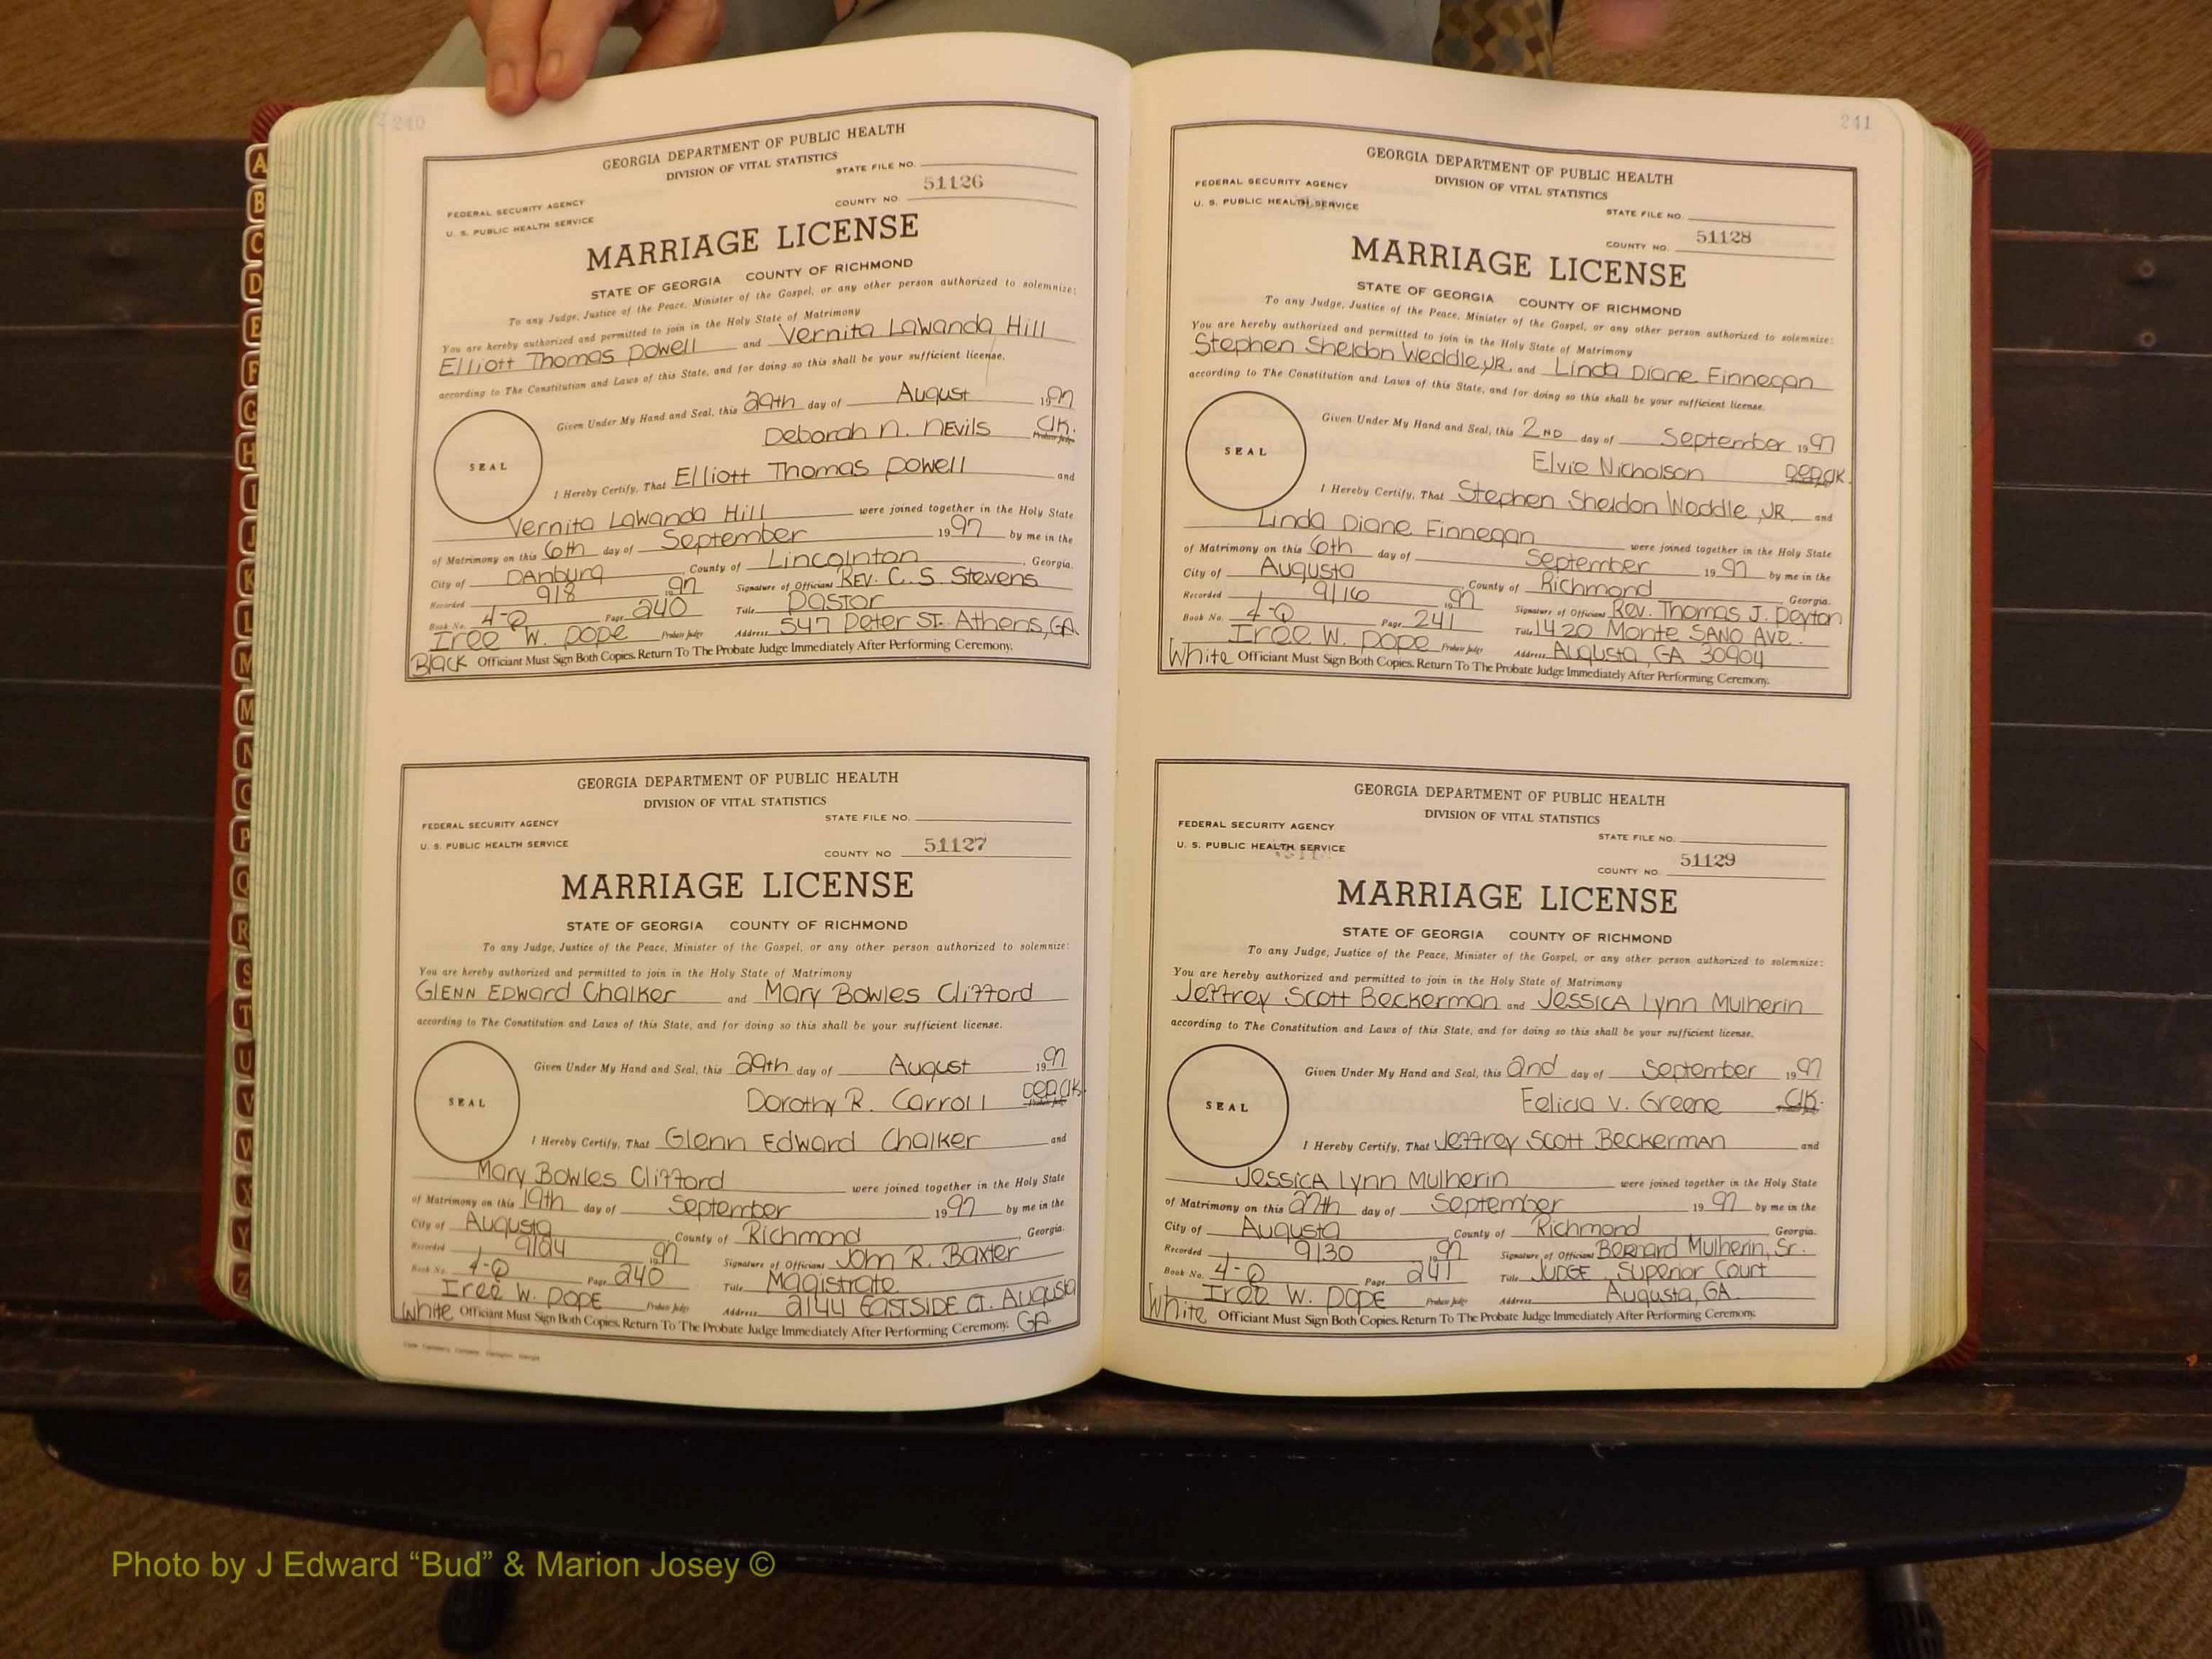 240
GEORGIA DEPARTMENT OF PUBLIC HEALTH
DIVISION OF VITAL STATISTICS
STATE FILE NO.
FEDERAL SECURITY AGENCY
U. S. PUBLIC HEALTH SERVICE
COUNTY NO. 51126
MARRIAGE LICENSE
STATE OF GEORGIA COUNTY OF RICHMOND
To any Judge, Justice of the Peace, Minister of the Gospel, or any other person authorized to solemnize:
You are hereby authorized and permitted to join in the Holy State of Matrimony
Elliott Thomas Powell and Vernita Lawanda Hill
according to The Constitution and Laws of this State, and for doing so this shall be your sufficient license.
Given Under My Hand and Seal, this 29th day of August 1997
Deborah N. NEvils Clk.
SEAL
I Hereby Certify, That Elliott Thomas Powell and
Vernita Lawanda Hill were joined together in the Holy State
of Matrimony on this 6th day of September 1997 by me in the
City of Danburg, County of Lincolnton, Georgia.
Recorded 9/8 1997 Signature of Officiant REV. C. S. Stevens
Book No. 4-Q Page 240 Title Pastor
Iree W. Pope Probate Judge Address 547 Peter ST. Athens, GA.
Black Officiant Must Sign Both Copies. Return To The Probate Judge Immediately After Performing Ceremony.
GEORGIA DEPARTMENT OF PUBLIC HEALTH
DIVISION OF VITAL STATISTICS
STATE FILE NO.
FEDERAL SECURITY AGENCY
U. S. PUBLIC HEALTH SERVICE
COUNTY NO 51127
MARRIAGE LICENSE
STATE OF GEORGIA COUNTY OF RICHMOND
To any Judge, Justice of the Peace, Minister of the Gospel, or any other person authorized to solemnize:
You are hereby authorized and permitted to join in the Holy State of Matrimony
GLENN EDWard Chalker and Mary Bowles Clifford
according to The Constitution and Laws of this State, and for doing so this shall be your sufficient license.
Given Under My Hand and Seal, this 29th day of August 1997
Dorothy R. Carroll DEP.Clk.
SEAL
I Hereby Certify, That Glenn Edward Chalker and
Mary Bowles Clifford were joined together in the Holy State
of Matrimony on this 19th day of September 1997 by me in the
City of Augusta, County of Richmond, Georgia.
Recorded 9/24 1997 Signature of Officiant John R. Baxter
Book No. 4-Q Page 240 Title Magistrate
Iree W. Pope Probate Judge Address 2144 EASTSIDE CT. Augusta
White Officiant Must Sign Both Copies. Return To The Probate Judge Immediately After Performing Ceremony. GA
241
GEORGIA DEPARTMENT OF PUBLIC HEALTH
DIVISION OF VITAL STATISTICS
FEDERAL SECURITY AGENCY
U. S. PUBLIC HEALTH SERVICE
STATE FILE NO.
COUNTY NO. 51128
MARRIAGE LICENSE
STATE OF GEORGIA COUNTY OF RICHMOND
To any Judge, Justice of the Peace, Minister of the Gospel, or any other person authorized to solemnize:
You are hereby authorized and permitted to join in the Holy State of Matrimony
Stephen Sheldon Weddle, JR. and Linda Diane Finnegan
according to The Constitution and Laws of this State, and for doing so this shall be your sufficient license.
Given Under My Hand and Seal, this 2ND day of September 1997
Elvie Nicholson DEP.Clk.
SEAL
I Hereby Certify, That Stephen Sheldon Weddle, JR. and
Linda Diane Finnegan were joined together in the Holy State
of Matrimony on this 6th day of September 1997 by me in the
City of Augusta, County of Richmond Georgia.
Recorded 9/16 1997 Signature of Officiant Rev. Thomas J. Peyton
Book No. 4-Q Page 241 Title 1420 Monte SANO Ave.
Iree W. Pope Probate Judge Address Augusta, GA 30904
White Officiant Must Sign Both Copies. Return To The Probate Judge Immediately After Performing Ceremony.
GEORGIA DEPARTMENT OF PUBLIC HEALTH
DIVISION OF VITAL STATISTICS
FEDERAL SECURITY AGENCY
STATE FILE NO.
U. S. PUBLIC HEALTH SERVICE
COUNTY NO. 51129
MARRIAGE LICENSE
STATE OF GEORGIA COUNTY OF RICHMOND
To any Judge, Justice of the Peace, Minister of the Gospel, or any other person authorized to solemnize:
You are hereby authorized and permitted to join in the Holy State of Matrimony
Jeffrey Scott Beckerman and Jessica Lynn Mulherin
according to The Constitution and Laws of this State, and for doing so this shall be your sufficient license.
Given Under My Hand and Seal, this 2nd day of September 1997
Felicia V. Greene Clk.
SEAL
I Hereby Certify, That Jeffrey Scott Beckerman and
Jessica Lynn Mulherin were joined together in the Holy State
of Matrimony on this 27th day of September 1997 by me in the
City of Augusta, County of Richmond, Georgia.
Recorded 9/30 1997 Signature of Officiant Bernard Mulherin, Sr.
Book No. 4-Q Page 241 Title JUDGE, Superior Court
Iree W. Pope Probate Judge Address Augusta, GA.
White Officiant Must Sign Both Copies. Return To The Probate Judge Immediately After Performing Ceremony.
A
B
C
D
E
F
G
H
I
J
K
L
M
M
N
O
P
Q
R
S
T
U
V
W
X
Y
Z
Photo by J Edward “Bud” & Marion Josey ©